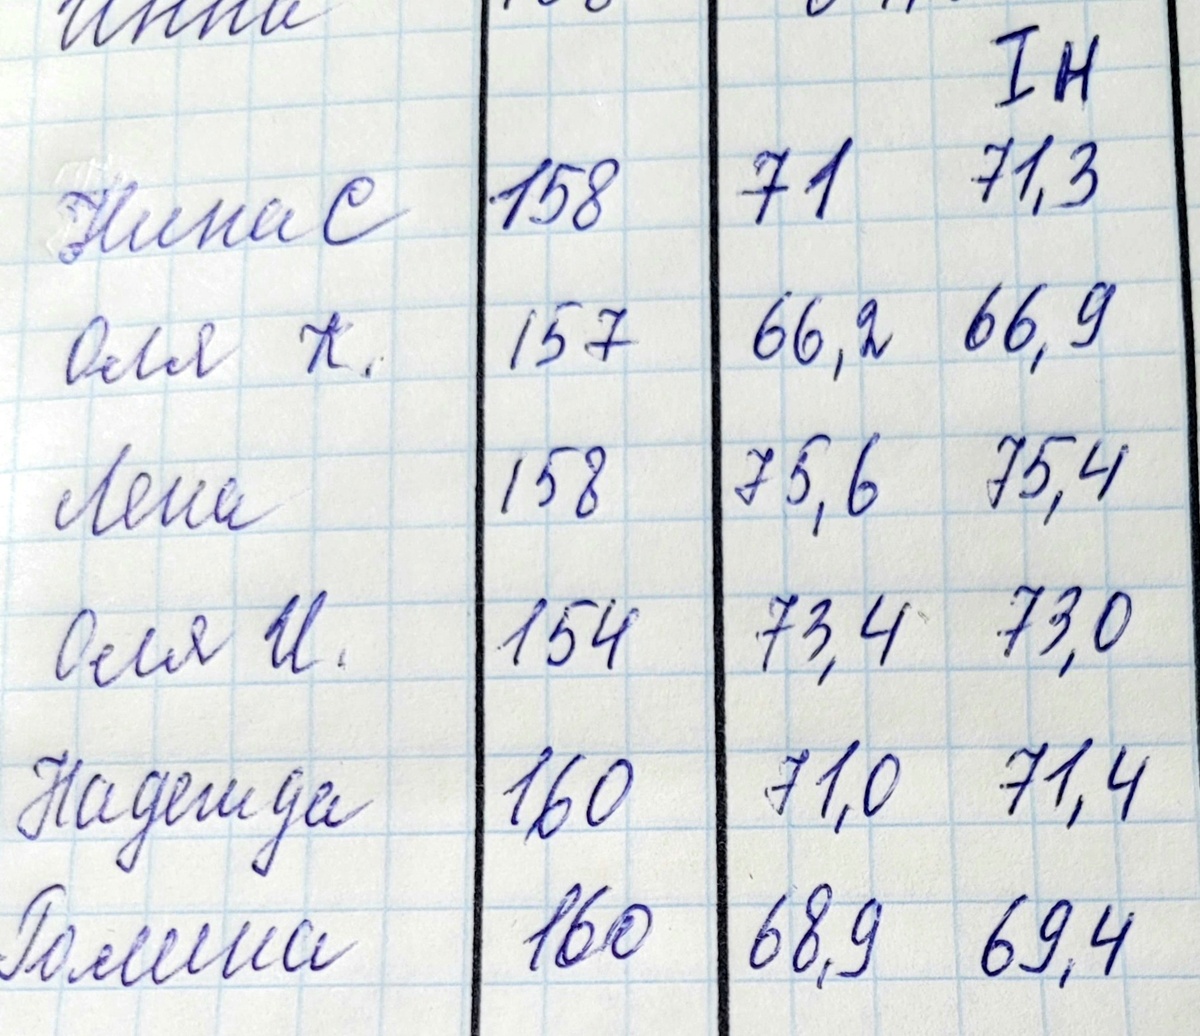 Инна
I н
Нина С 158 71 71,3
Оля К. 157 66,2 66,9
Лена 158 75,6 75,4
Оля И. 154 73,4 73,0
Надежда 160 71,0 71,4
Галина 160 68,9 69,4